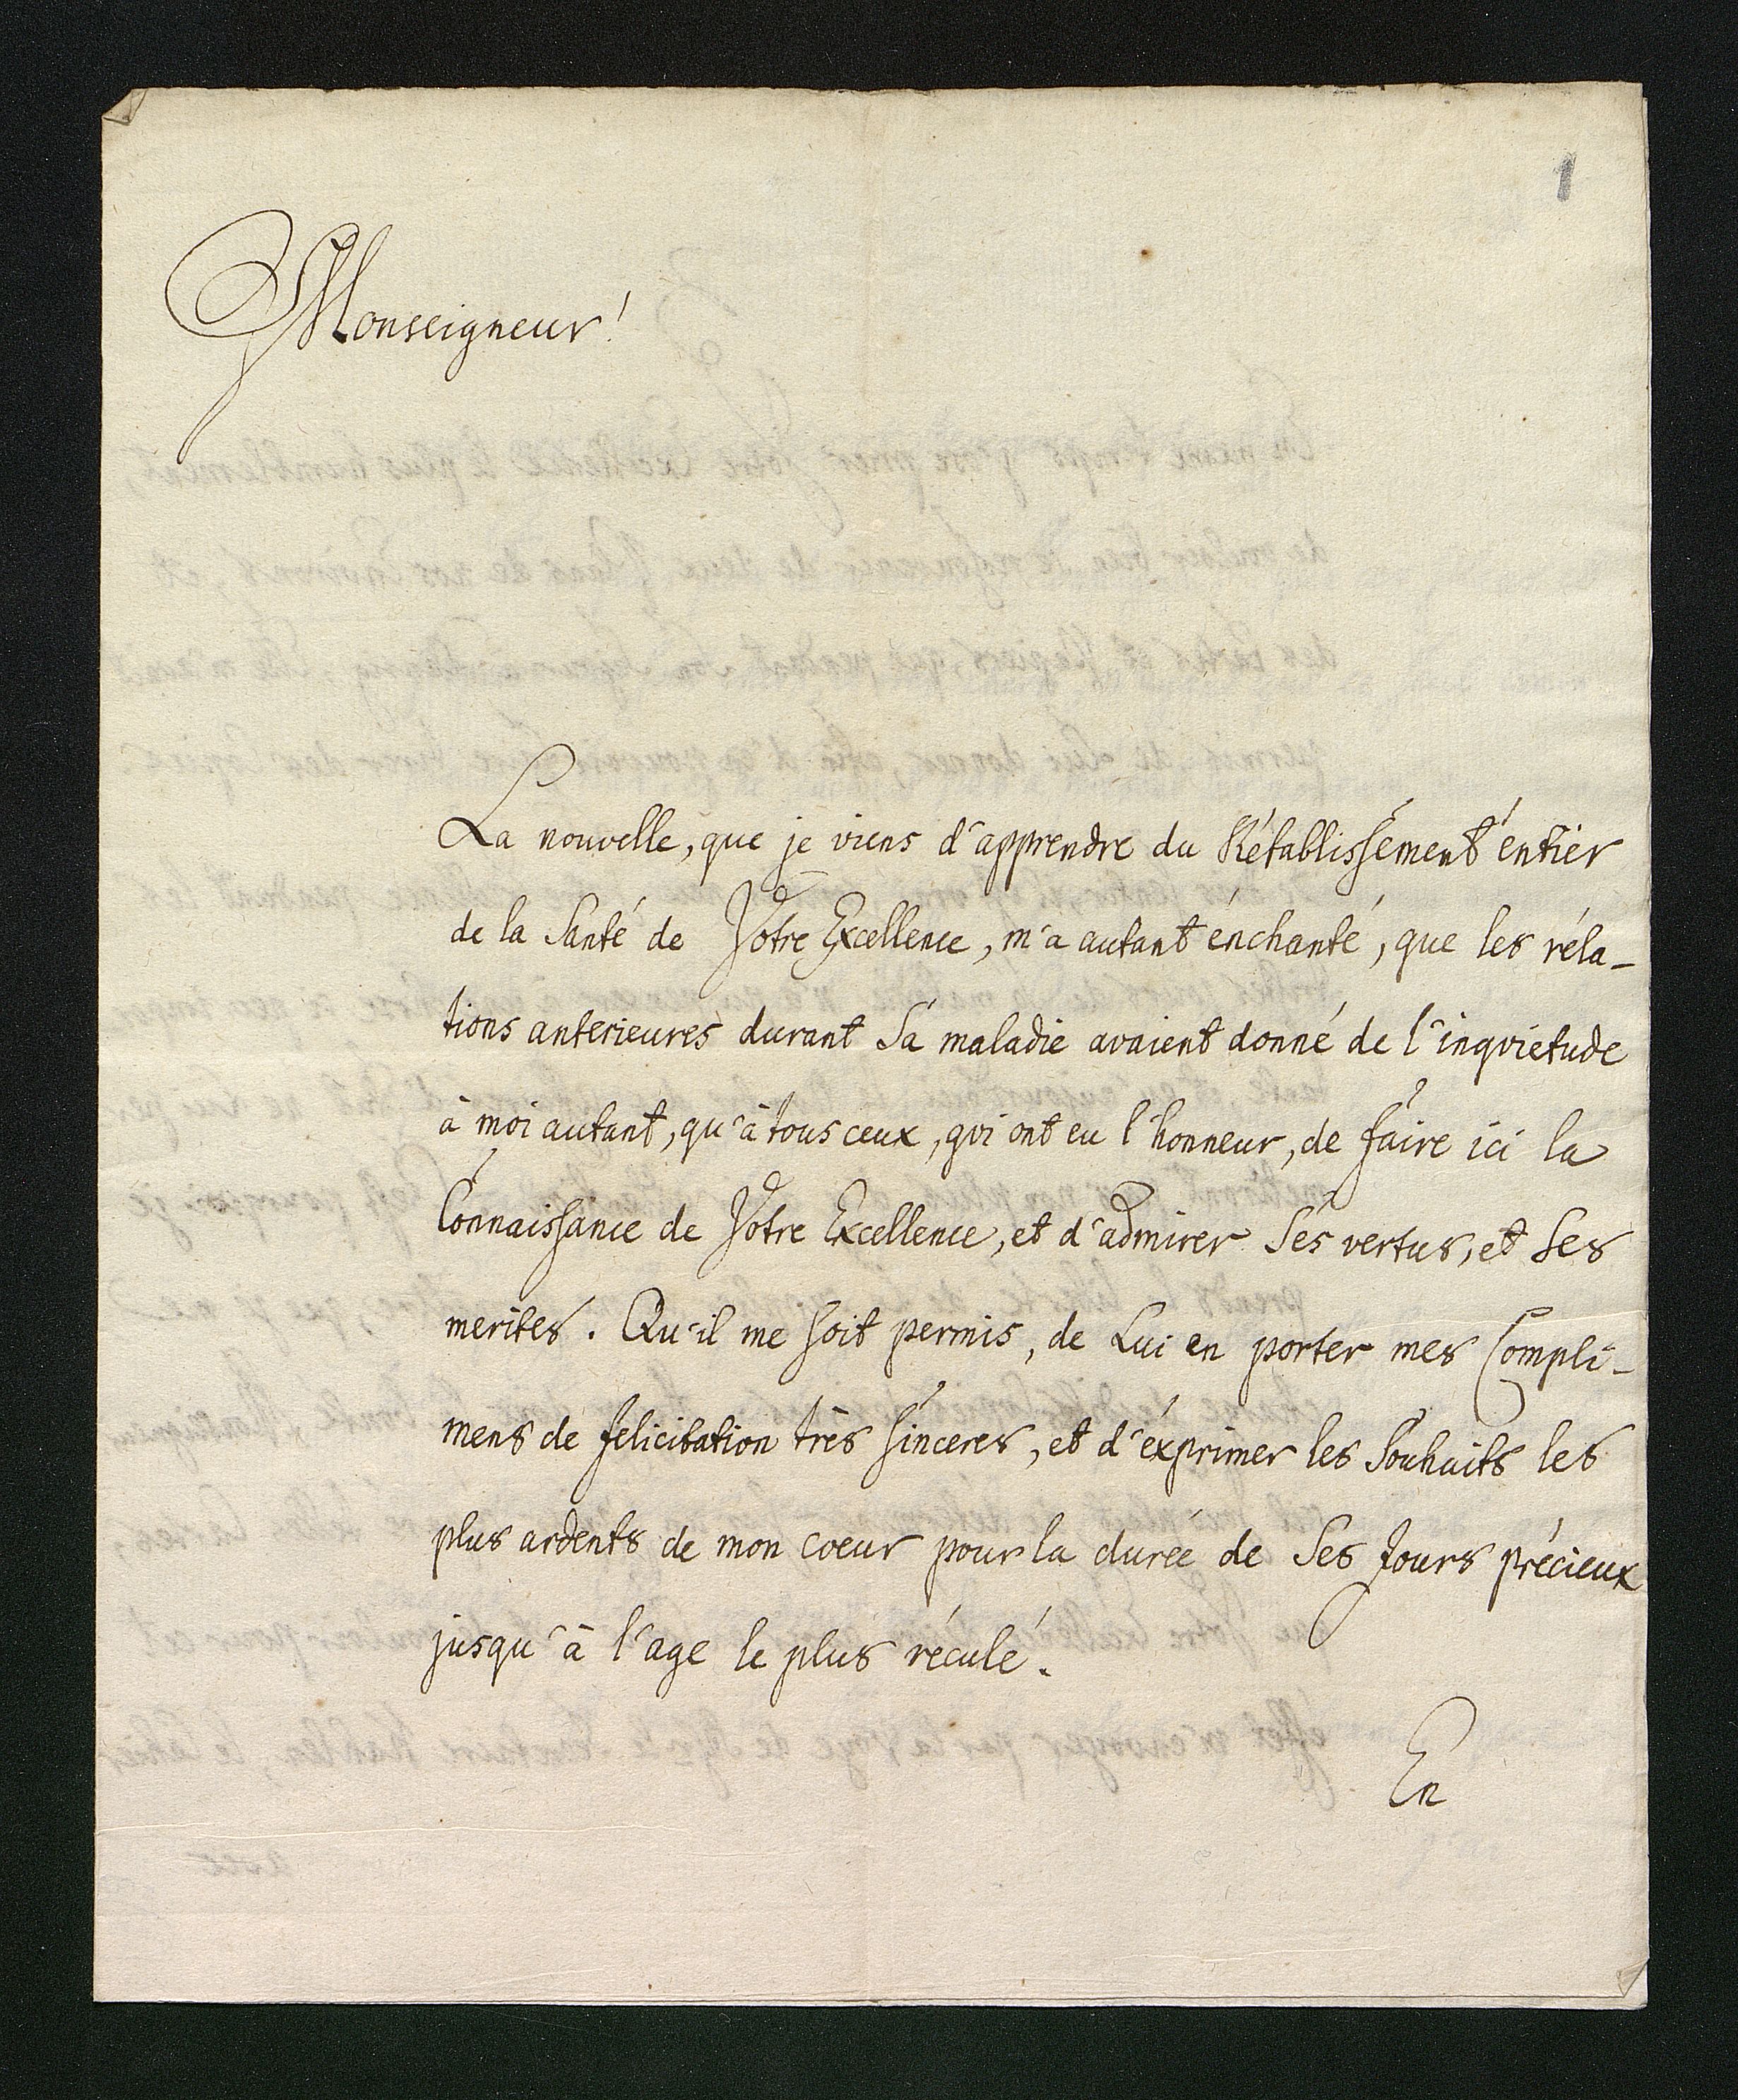 1
Monseigneur!
La nouvelle, que je viens d'apprendre du Rétablissément éntiér
de la Santé de Votre Excellence, m'a autant énchanté, que les réla-
tions anterieures durant Sa maladie avaient donné de l'inquietude
à moi autant, qu'à tous ceux, qui ont eu l'honneur, de faire ici la
Connaissance de Votre Excellence, et d'admirer Ses vertus, et Ses
merites. Qu'il me soit permis, de Lui en porter mes Compli-
mens de felicitation très sinceres, et d'éxprimer les Souhaits les
plus ardents de mon coeur pour la durée de Ses Jours précieux
jusqu'à l'age le plus réculé.
En